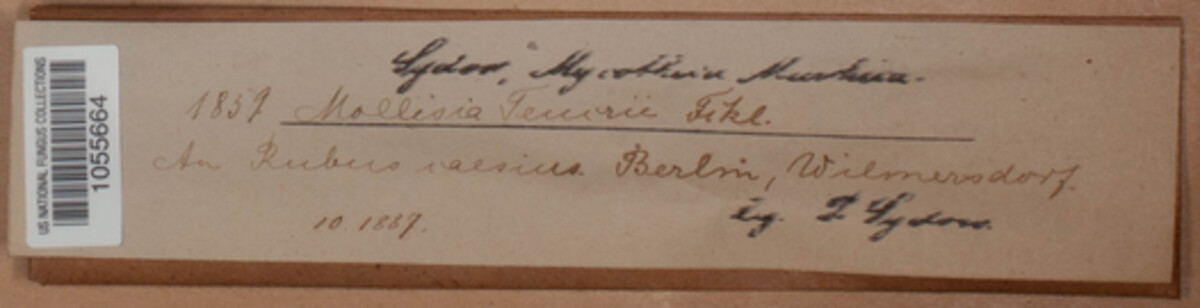 US NATIONAL FUNGUS COLLECTIONS
1055664
Sydow, Mycotheca Marchica.
1857 Mollisia Teucrii Fckl.
An Rubus caesius. Berlin, Wilmersdorf.
10. 1887.
leg. P. Sydow.